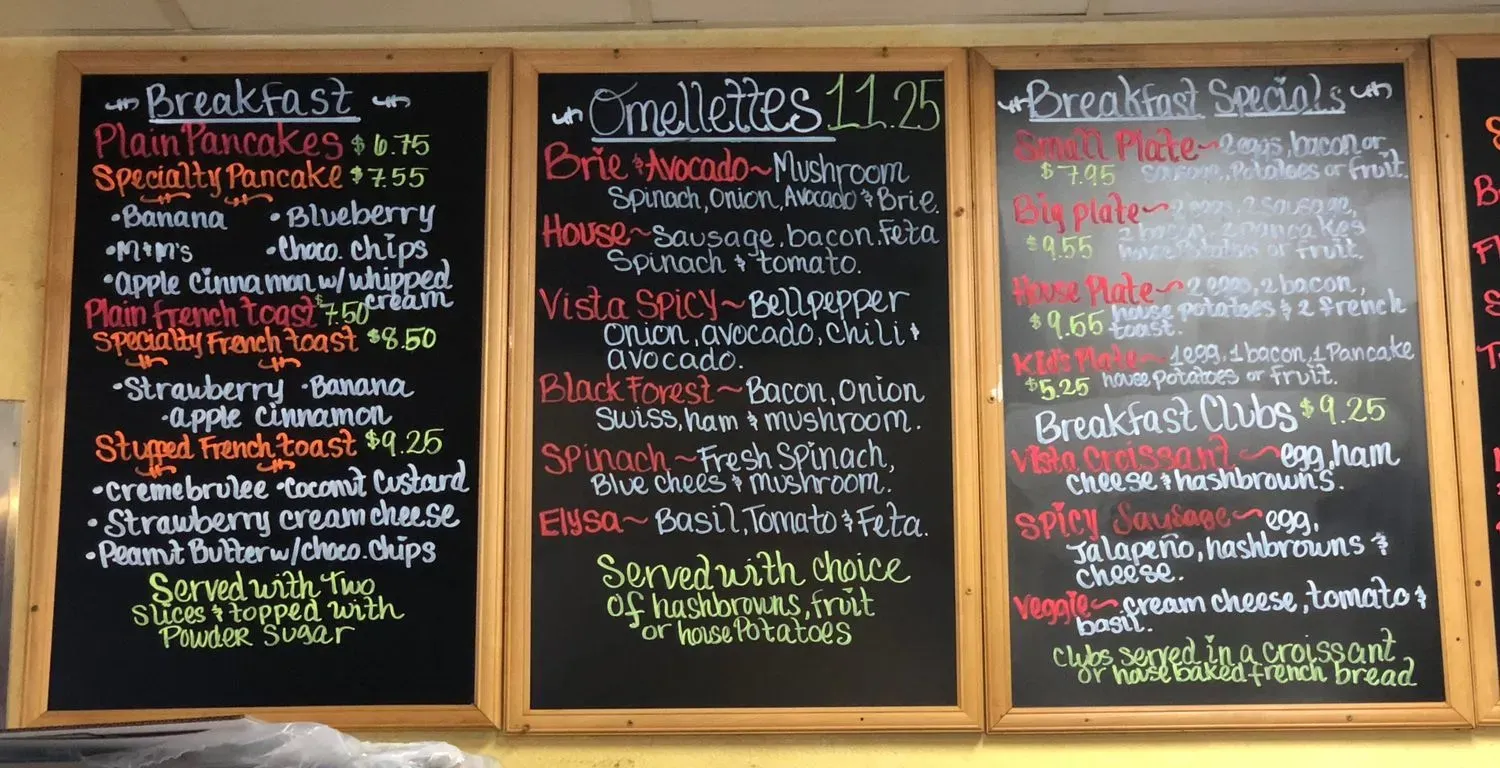 Breakfast
Plain Pancakes $6.75
Specialty Pancake $7.55
•Banana •Blueberry
•M&M's •Choco. chips
•apple cinnamon w/ whipped
cream
Plain french toast $7.50
Specialty French toast $8.50
•Strawberry •Banana
•apple cinnamon
Stuffed French toast $9.25
•cremebrulee •Coconut Custard
•Strawberry cream cheese
•Peanut Butter w/choco. chips
Served with Two
slices & topped with
Powder Sugar
Omellettes 11.25
Brie & Avocado~ Mushroom
Spinach, Onion, Avocado & Brie.
House~ sausage, bacon, Feta
Spinach & tomato.
Vista Spicy~ Bellpepper
Onion, avocado, Chili &
avocado.
Black Forest~ Bacon, Onion
swiss, ham & mushroom.
Spinach~ Fresh Spinach,
Blue chees & mushroom.
Elysa~ Basil, Tomato & Feta.
Served with choice
of hashbrowns, fruit
or house Potatoes
Breakfast Specials
Small Plate~ 2 eggs, bacon or
$7.95 sausage, Potatoes or fruit.
Big plate~ 2 eggs, 2 sausage,
2 bacon, 2 pancakes
$9.55 house Potatoes or fruit.
House Plate~ 2 eggs, 2 bacon,
$9.55 house potatoes & 2 french
toast.
Kid's Plate~ 1 egg, 1 bacon, 1 Pancake
$5.25 house potatoes or fruit.
Breakfast Clubs $9.25
Vista Croissant~ egg, ham
cheese & hashbrowns.
Spicy Sausage~ egg,
Jalapeño, hashbrowns &
cheese.
Veggie~ cream cheese, tomato &
basil.
Clubs served in a croissant
or house baked french bread